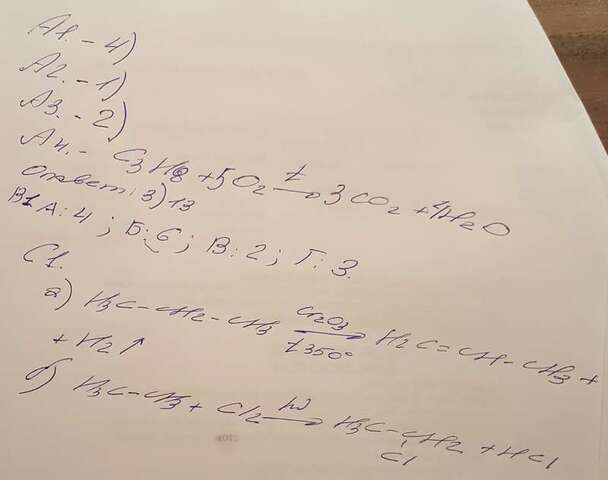 А1. - 4)
А2. - 1)
А3. - 2)
А4. - C3H8 + 5O2 t→ 3CO2 + 4H2O
Ответ: 3) 13
В1 А: 4 ; Б: 6 ; В: 2 ; Г: 3.
С1.
а) H3C-CH2-CH3 Cr2O3→ t350° H2C=CH-CH3 +
+ H2↑
б) H3C-CH3 + Cl2 hν→ H3C-CH2 + HCl
Cl